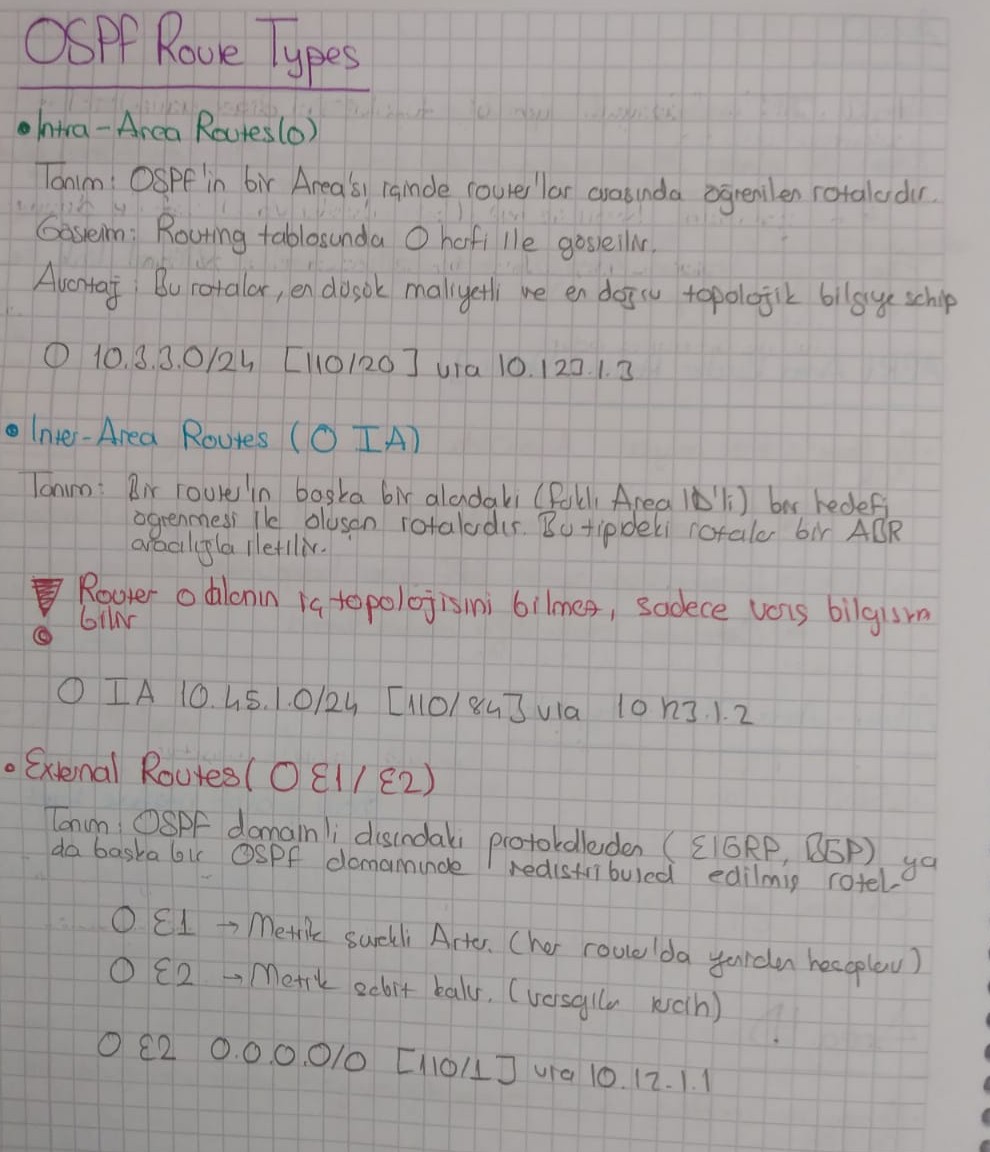 OSPF Route Types
• Intra-Area Routes(O)
Tanım: OSPF'in bir Area'sı içinde router'lar arasında öğrenilen rotalardır.
Gösterim: Routing tablosunda O harfi ile gösterilir.
Avantaj: Bu rotalar, en düşük maliyetli ve en doğru topolojik bilgiye sahip
O 10.3.3.0/24 [110/20] via 10.123.1.3
• Inter-Area Routes (O IA)
Tanım: Bir router'ın başka bir alandaki (farklı Area ID'li) bir hedefi
öğrenmesi ile oluşan rotalardır. Bu tipdeki rotalar bir ABR
aracılığıyla iletilir.
! Router o alanın iç topolojisini bilmez, sadece varış bilgisini
bilir
O IA 10.45.1.0/24 [110/84] via 10.123.1.2
• External Routes (O E1/E2)
Tanım: OSPF domain'i dışındaki protokollerden (EIGRP, BGP) ya
da başka bir OSPF domaininde redistributed edilmiş rotalar
O E1 → Metrik sürekli Artar. (her router'da yeniden hesaplanır)
O E2 → Metrik sabit kalır. (varsayılan tercih)
O E2 0.0.0.0/0 [110/1] via 10.12.1.1